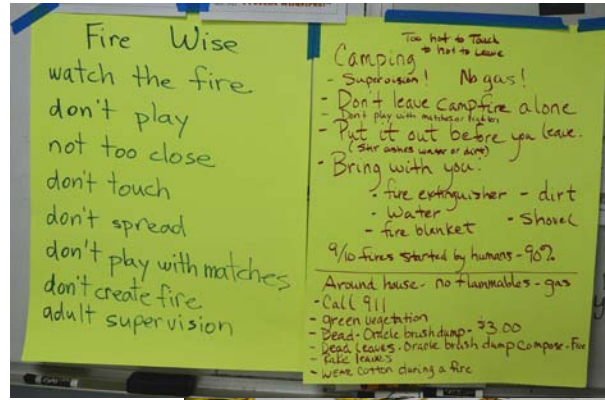 Fire Wise
watch the fire
don't play
not too close
don't touch
don't spread
don't play with matches
don't create fire
adult supervision
Too hot to Touch
to hot to Leave
Camping
- Supervision! No gas!
- Don't leave campfire alone
- Don't play with matches or
- Put it out before you leave.
(Stir ashes water or dirt)
- Bring with you:
- fire extinguisher - dirt
- Water - Shovel
- fire blanket
9/10 fires started by humans - 90%
Around house - no flammables - gas
- Call 911
- green vegetation
- Dead - Oracle brush dump - $3.00
- Dead leaves - Oracle brush dump compose -
- Rake leaves
- Wear cotton during a fire